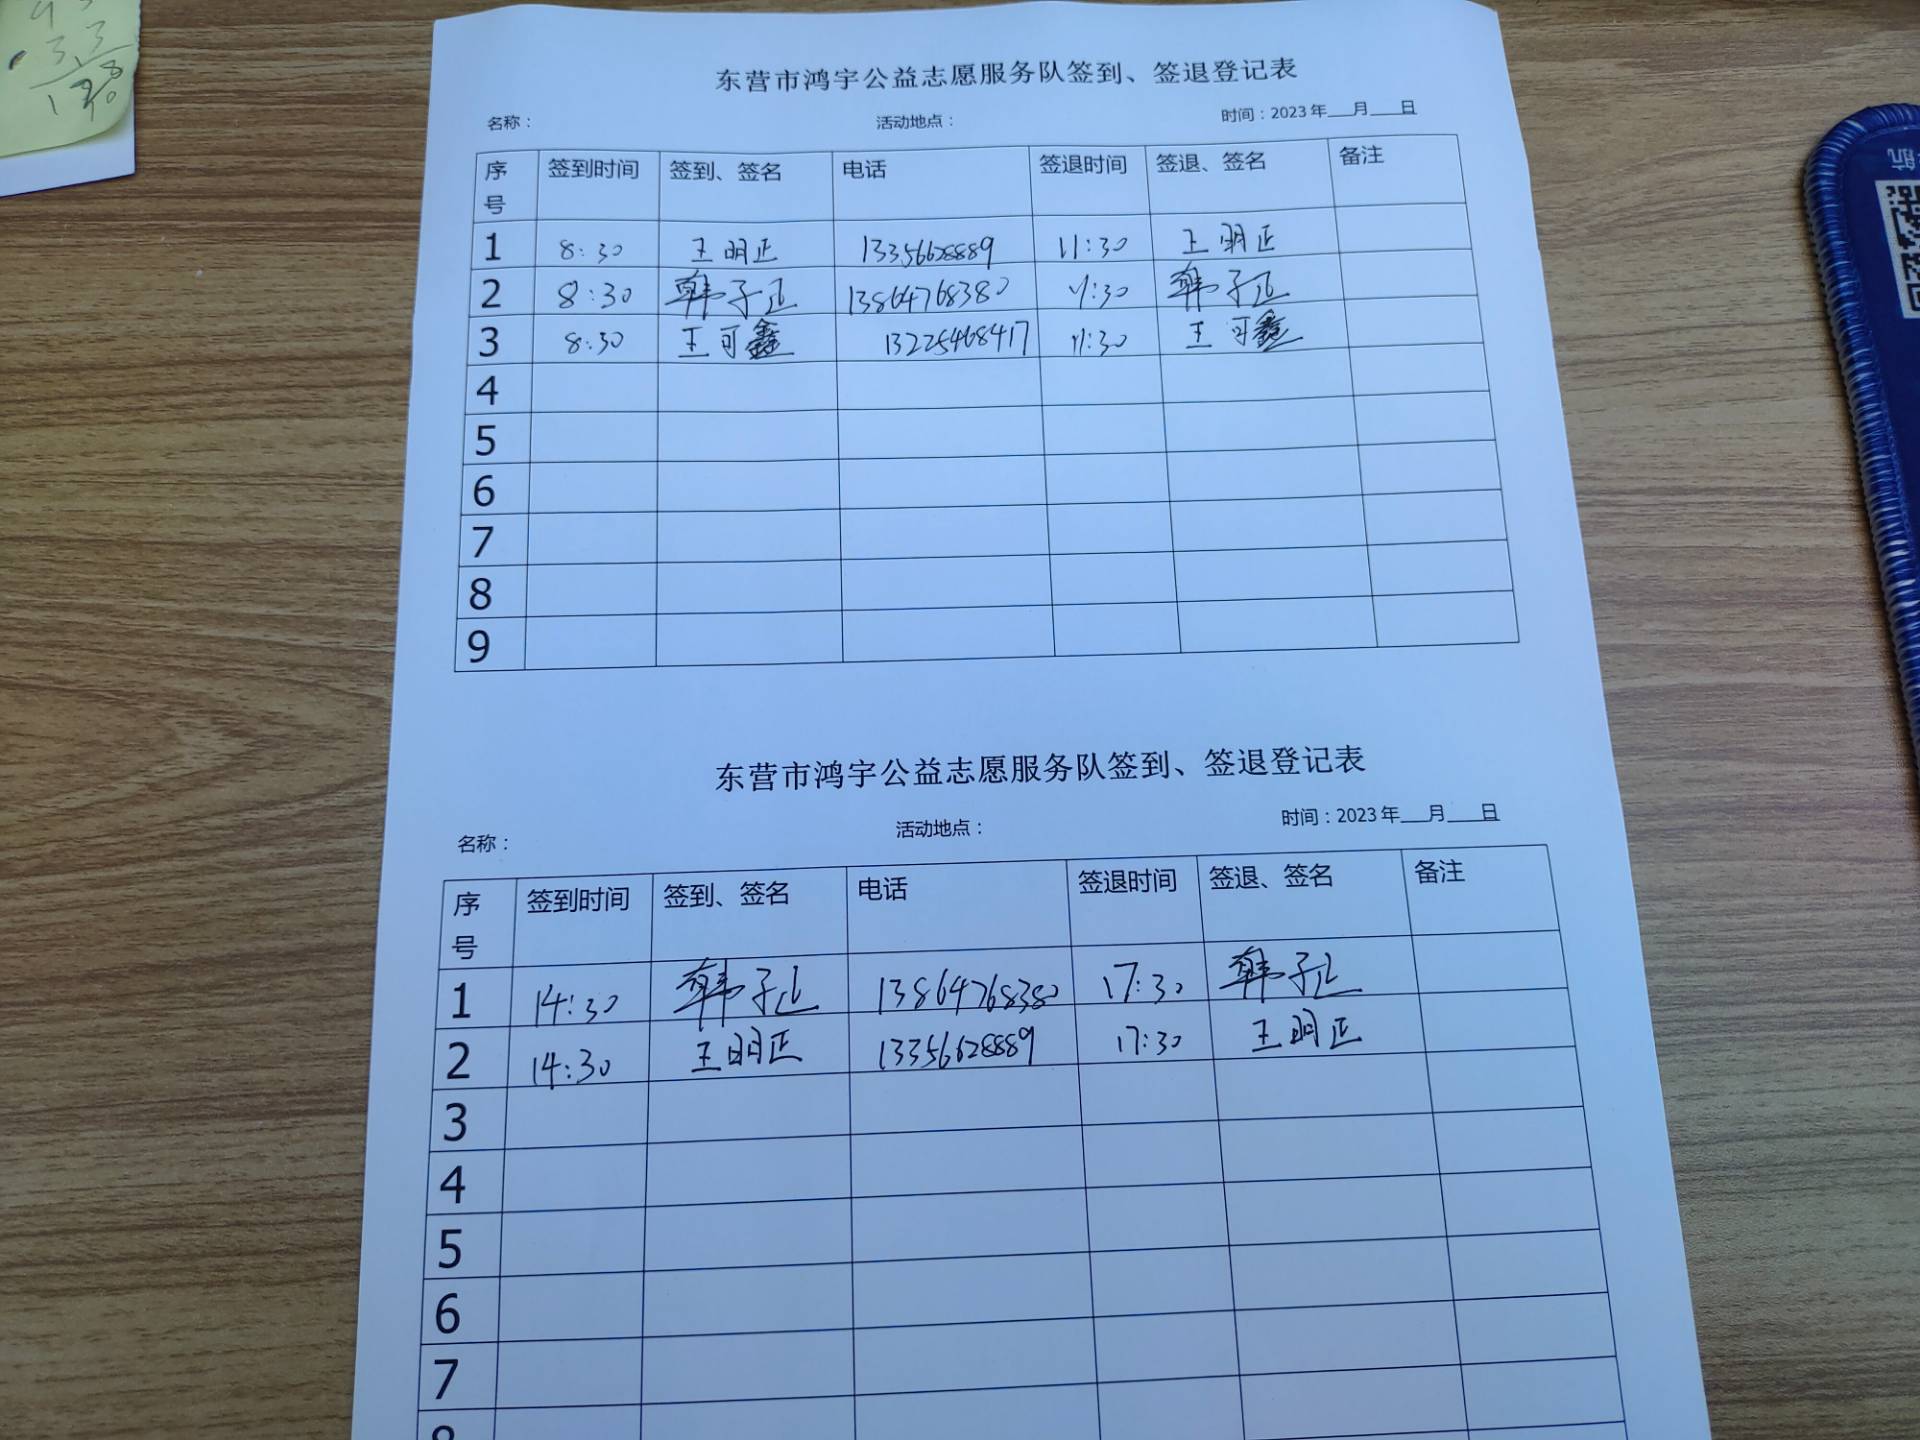 东营市鸿宇公益志愿服务队签到、签退登记表
名称： 活动地点： 时间：2023年___月___日
序号 签到时间 签到、签名 电话 签退时间 签退、签名 备注
1 8:30 王明正 13356628889 11:30 王明正
2 8:30 韩子正 13864768380 11:30 韩子正
3 8:30 王可鑫 13225468417 11:30 王可鑫
4
5
6
7
8
9
东营市鸿宇公益志愿服务队签到、签退登记表
名称： 活动地点： 时间：2023年___月___日
序号 签到时间 签到、签名 电话 签退时间 签退、签名 备注
1 14:30 韩子正 13864768380 17:30 韩子正
2 14:30 王明正 13356628889 17:30 王明正
3
4
5
6
7
8